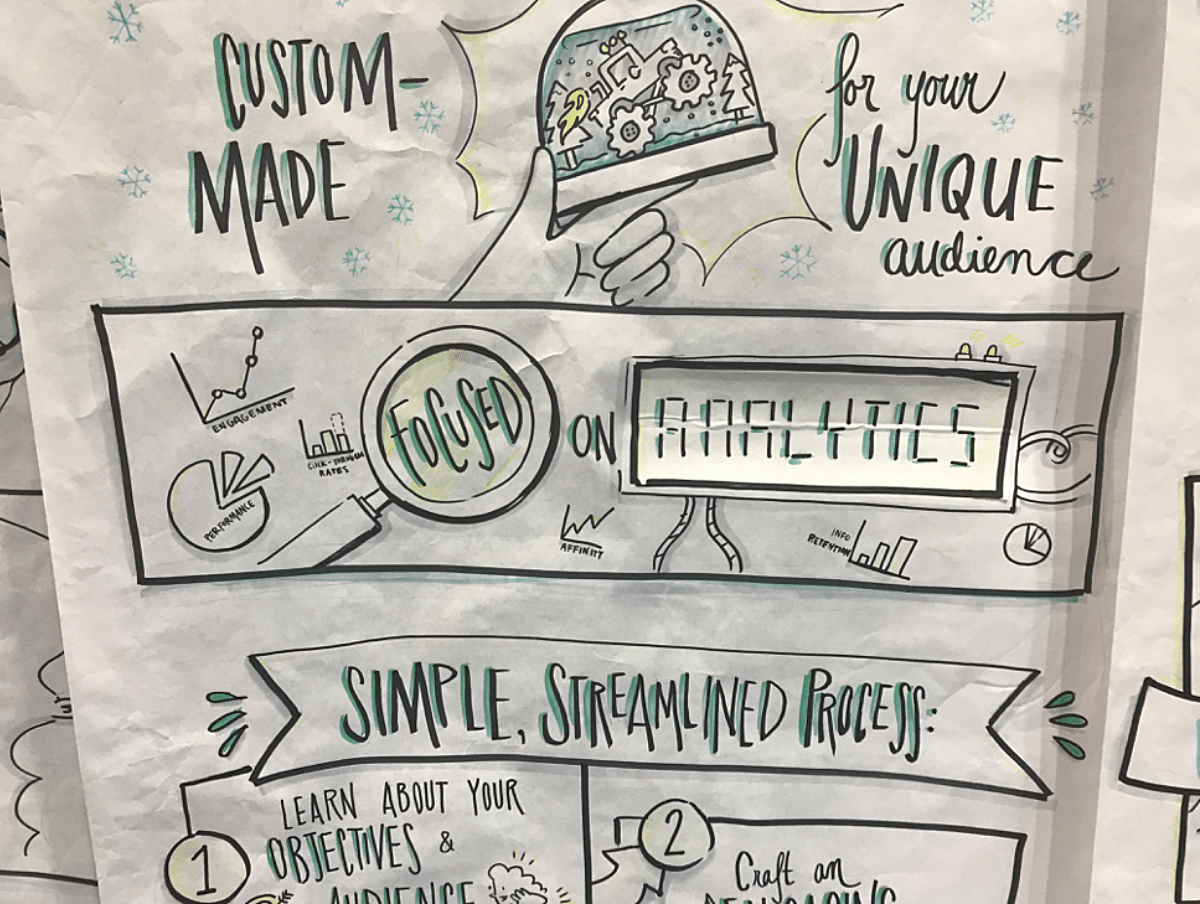 CUSTOM-
MADE
for your
UNIQUE
audience
ENGAGEMENT
CLICK-THROUGH
RATES
PERFORMANCE
FOCUSED
ON
ANALYTICS
AFFINITY
INFO
RETENTION
SIMPLE, STREAMLINED PROCESS:
1
LEARN ABOUT YOUR
OBJECTIVES &
AUDIENCE
2
Craft an